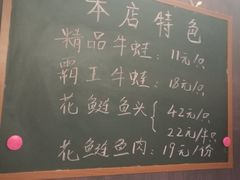 本店特色
精品牛蛙：11元/只
霸王牛蛙：18元/只
花鲢鱼头{42元/只
22元/半只
花鲢鱼肉：19元/份